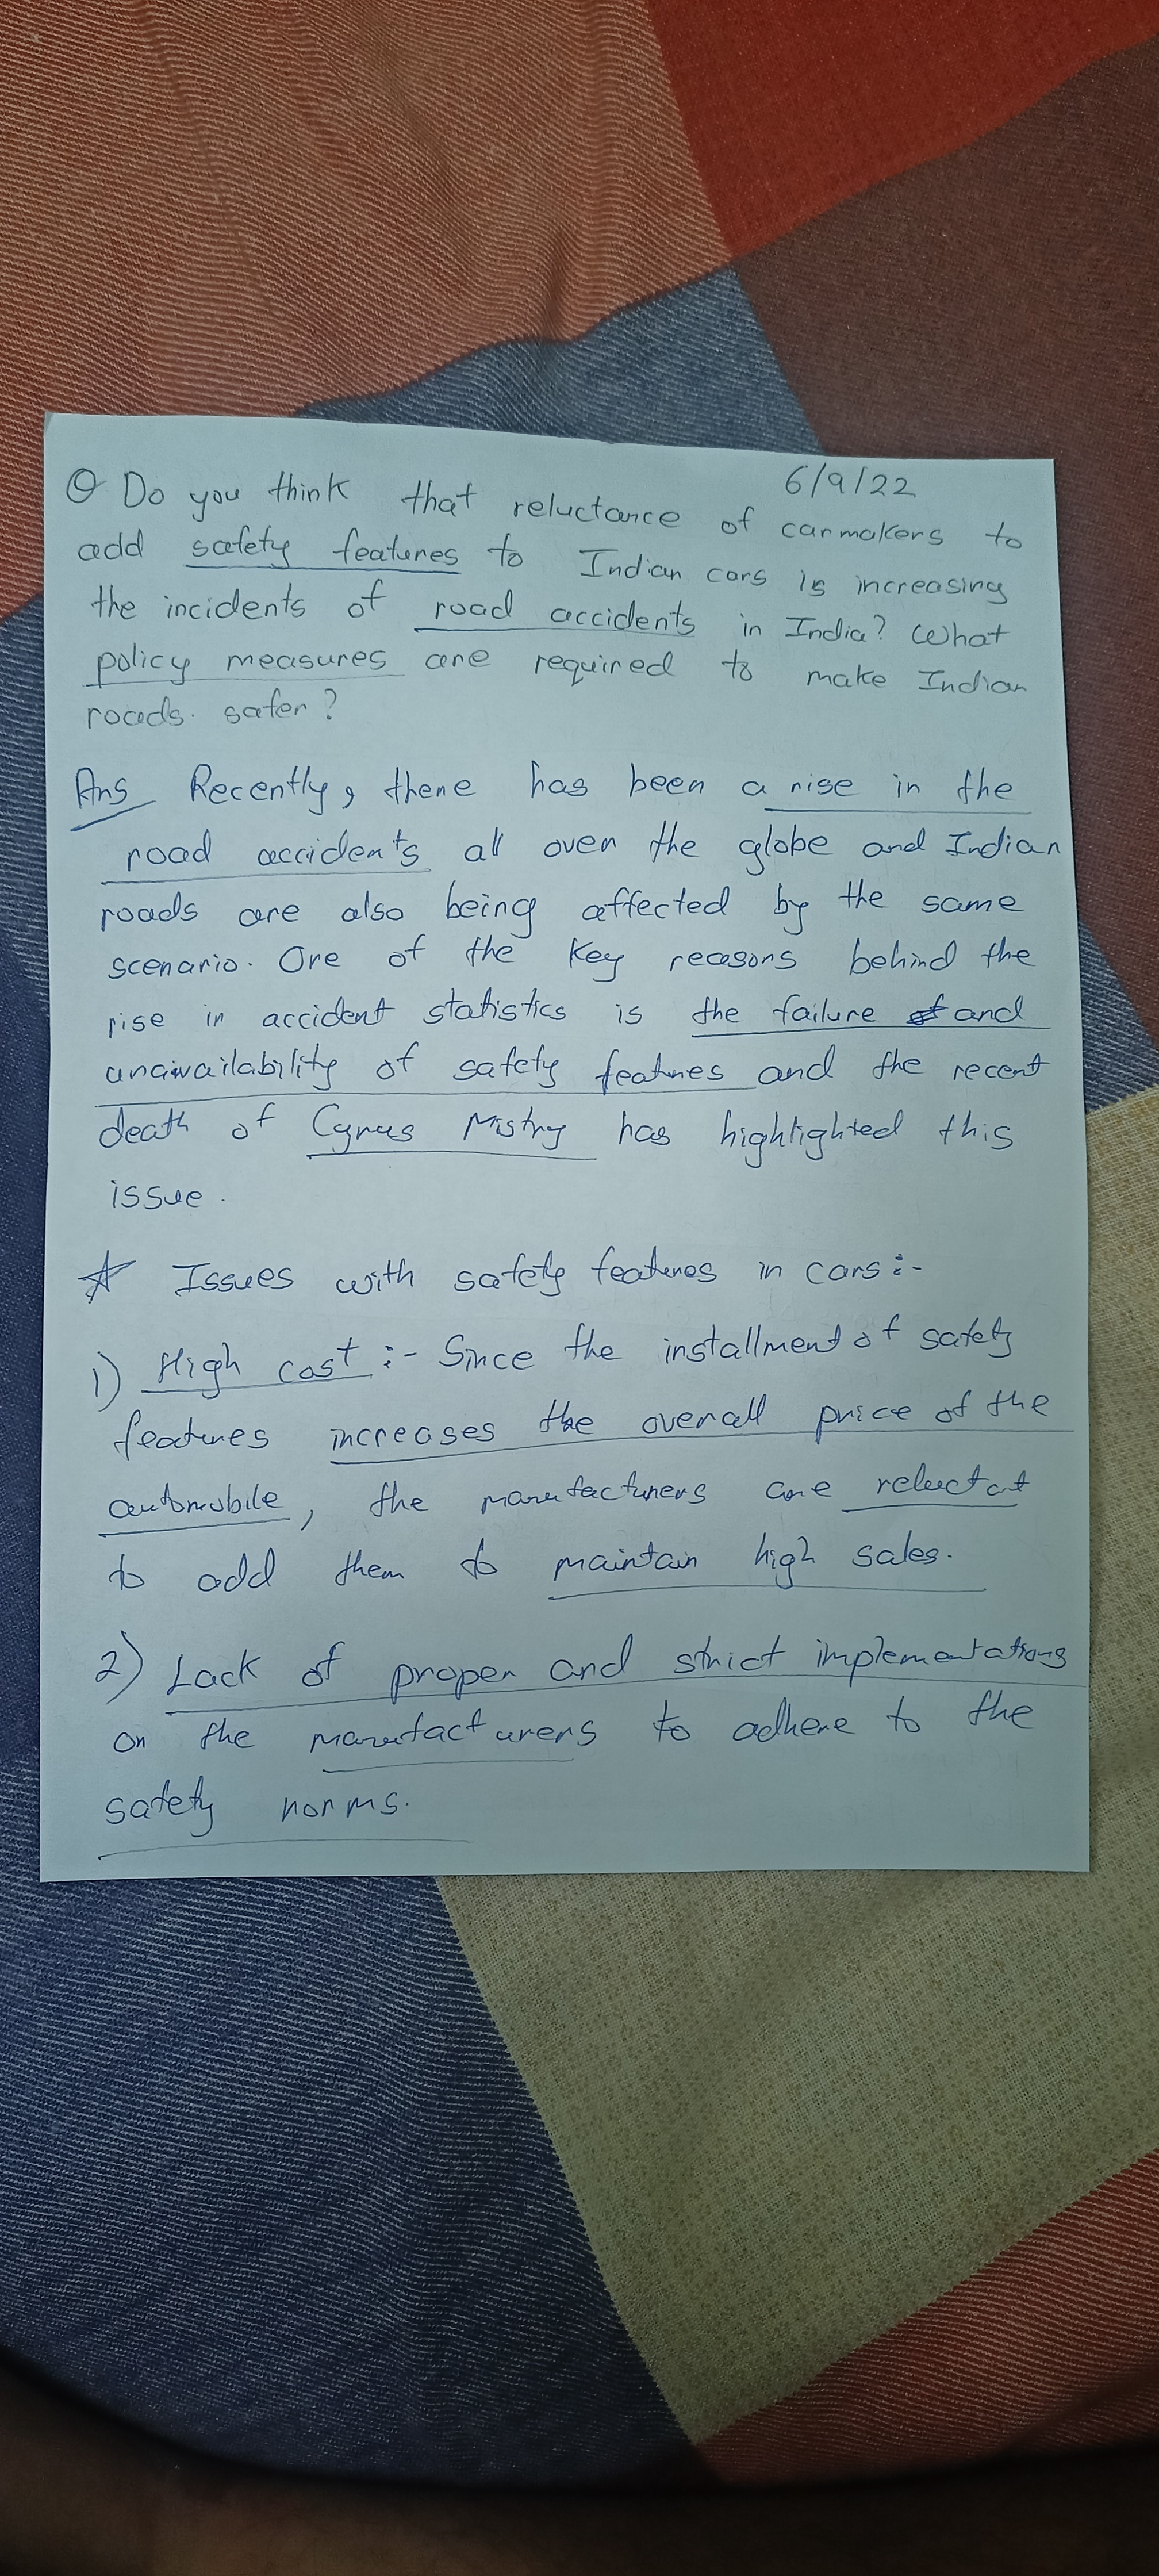 6/9/22
Q Do you think that reluctance of carmakers to
add safety features to Indian cars is increasing
the incidents of road accidents in India? What
policy measures are required to make Indian
roads. safer?
Ans Recently, there has been a rise in the
road accidents all over the globe and Indian
roads are also being affected by the same
scenario. One of the key reasons behind the
rise in accident statistics is the failure and
unavailability of safety features and the recent
death of Cyrus Mistry has highlighted this
issue.
☆ Issues with safety features in cars:-
1) High cost:- Since the installment of safety
features increases the overall price of the
automobile, the manufacturers are reluctat
to add them to maintain high sales.
2) Lack of proper and strict implementations
on the manufacturers to adhere to the
safety norms.